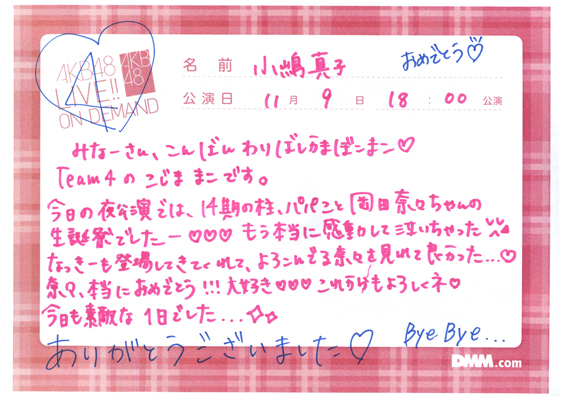 AKB48
LIVE!!
ON DEMAND
AKB
48
4
名前 小嶋真子
おめでとう♡
公演日 11月9日 18:00公演
みなーさん、こんばんわりばしかまぼこまこ♡
Team4のこじままこです。
今日の夜公演では、14期の柱、パパこと岡田奈々ちゃんの
生誕祭でしたー♡♡♡ もう本当に感動して泣いちゃった
なっきーも登場してきてくれて、よろこんでる奈々を見れて良かった...♡
奈々、本当におめでとう!!! 大好き♡♡♡ これからもよろしくネ♡
今日も素敵な1日でした...☆☆
ありがとうございました♡
Bye Bye...
DMM.com